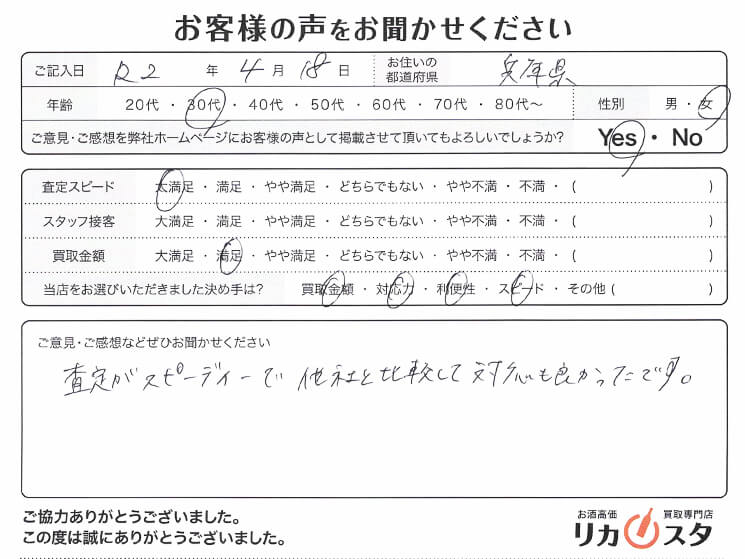 お客様の声をお聞かせください
ご記入日 R2 年 4 月 18 日 お住いの都道府県 兵庫県
年齢 20代 ・ 30代 ・ 40代 ・ 50代 ・ 60代 ・ 70代 ・ 80代〜 性別 男 ・ 女
ご意見・ご感想を弊社ホームページにお客様の声として掲載させて頂いてもよろしいでしょうか? Yes ・ No
査定スピード 大満足 ・ 満足 ・ やや満足 ・ どちらでもない ・ やや不満 ・ 不満 ・ ( )
スタッフ接客 大満足 ・ 満足 ・ やや満足 ・ どちらでもない ・ やや不満 ・ 不満 ・ ( )
買取金額 大満足 ・ 満足 ・ やや満足 ・ どちらでもない ・ やや不満 ・ 不満 ・ ( )
当店をお選びいただきました決め手は? 買取金額 ・ 対応力 ・ 利便性 ・ スピード ・ その他 ( )
ご意見・ご感想などぜひお聞かせください
査定がスピーディーで他社と比較して対応も良かったです。
ご協力ありがとうございました。
この度は誠にありがとうございました。
お酒高価 買取専門店
リカスタ